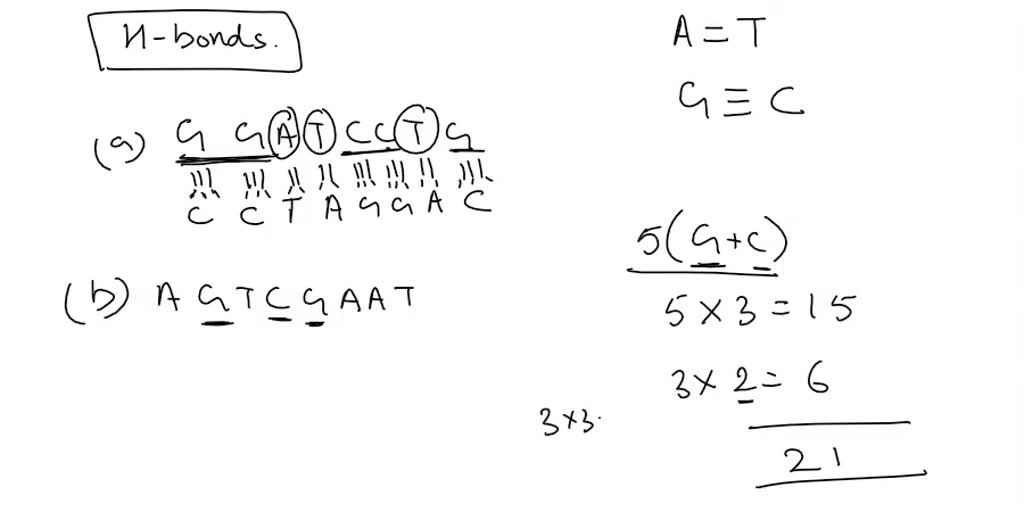 H-bonds.
A = T
G ≡ C
(a) G G A T C C T G
C C T A G G A C
5(G+C)
(b) A G T C G A A T
5 × 3 = 15
3 × 2 = 6
3 × 3.
21